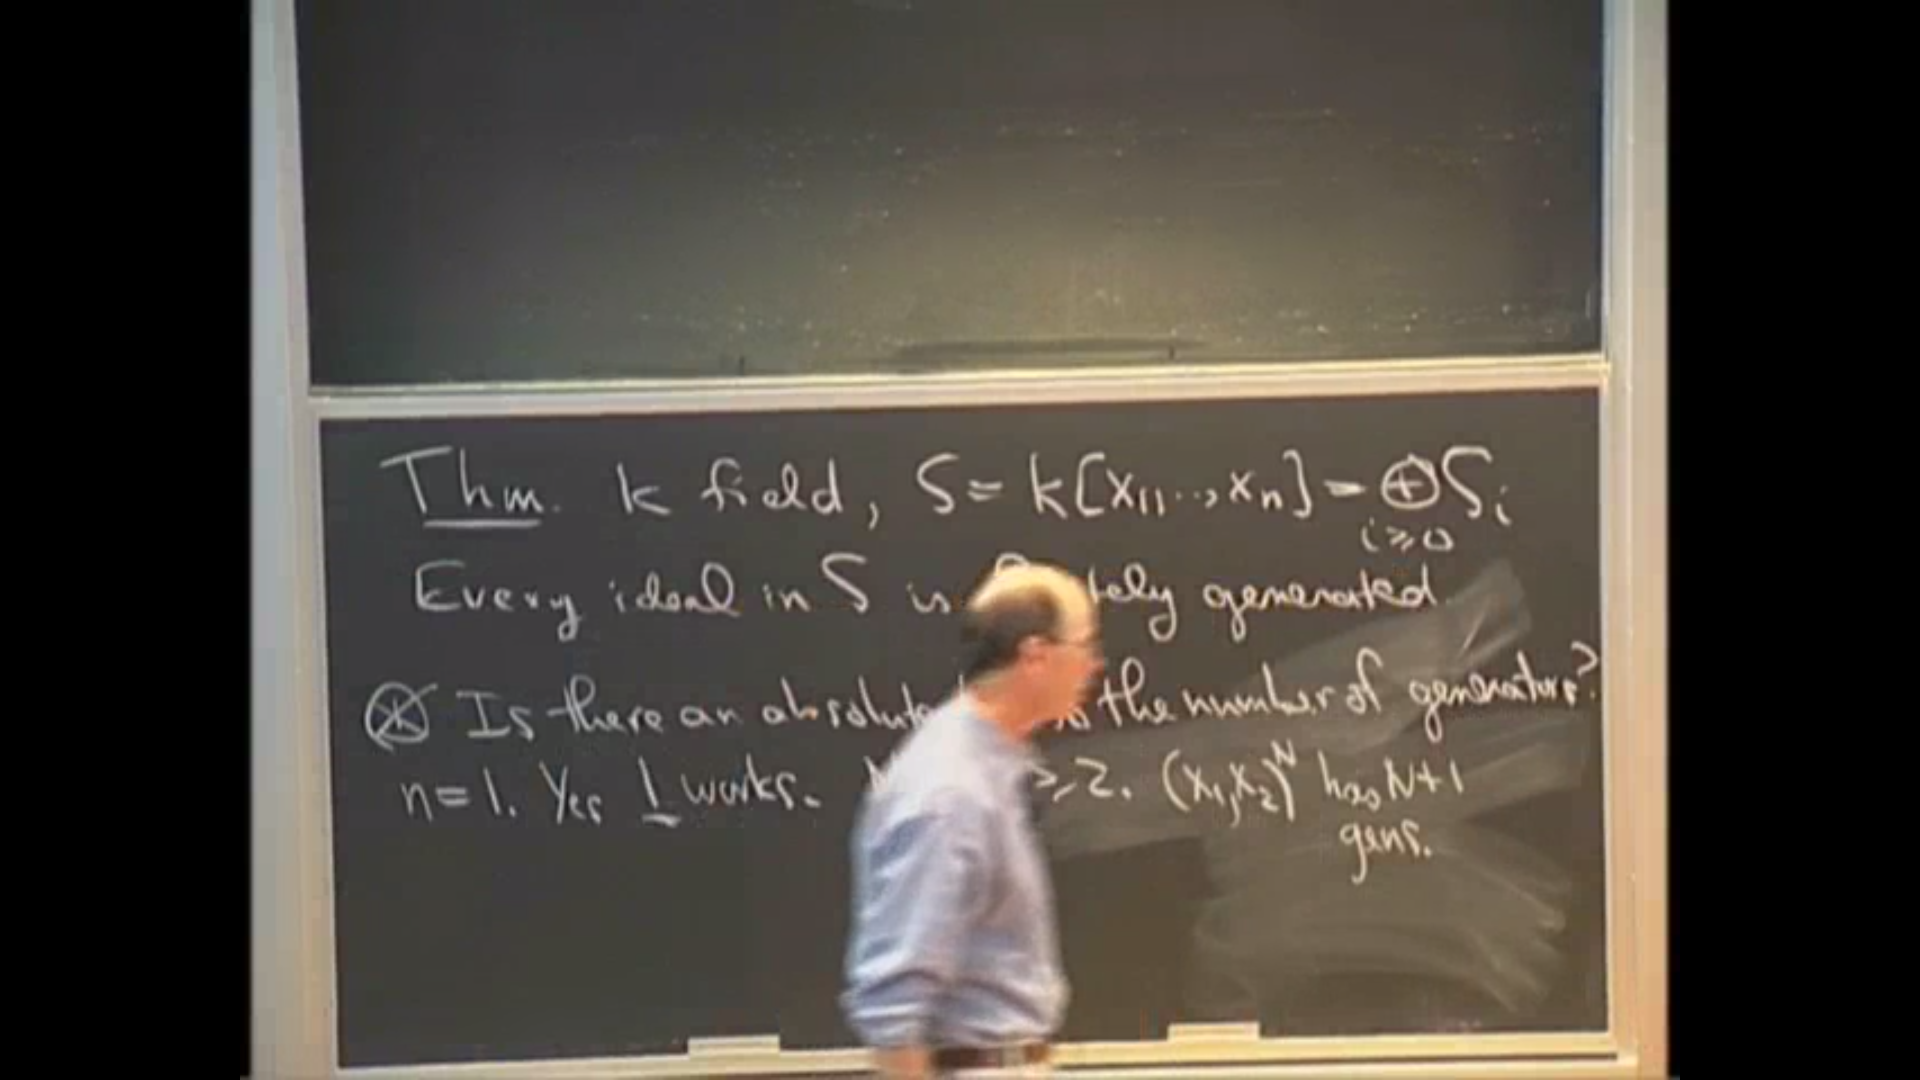 Thm. k field, S = k[x₁,..,xₙ] = ⊕ Sᵢ
i≥0
Every ideal in S is generated.
⊛ Is there an the number of generators?
n=1. Yes 1 works. ≥2. (x₁,x₂)ᴺ has N+1
gens.